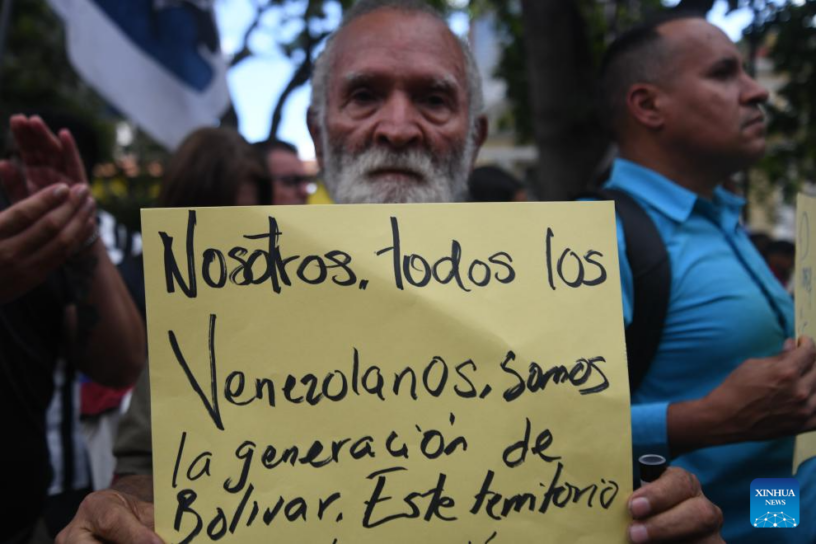 Nosotros, todos los
Venezolanos, somos
la generación de
Bolívar. Este territorio
XINHUA
NEWS